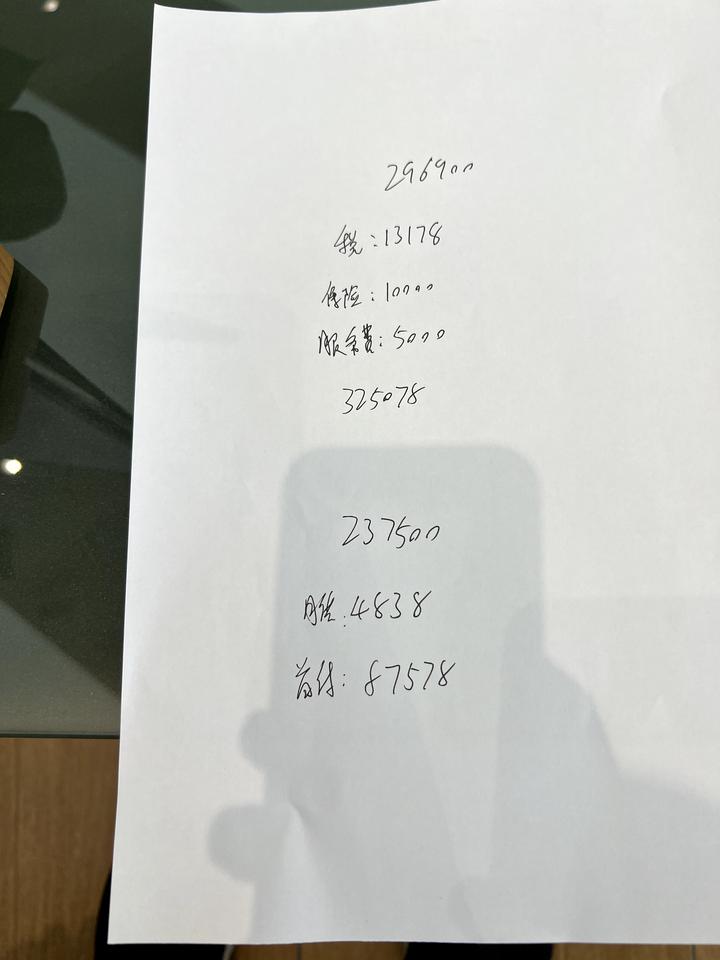 296900
税:13178
保险:10000
服务费:5000
325078
237500
月供:4838
首付:87578